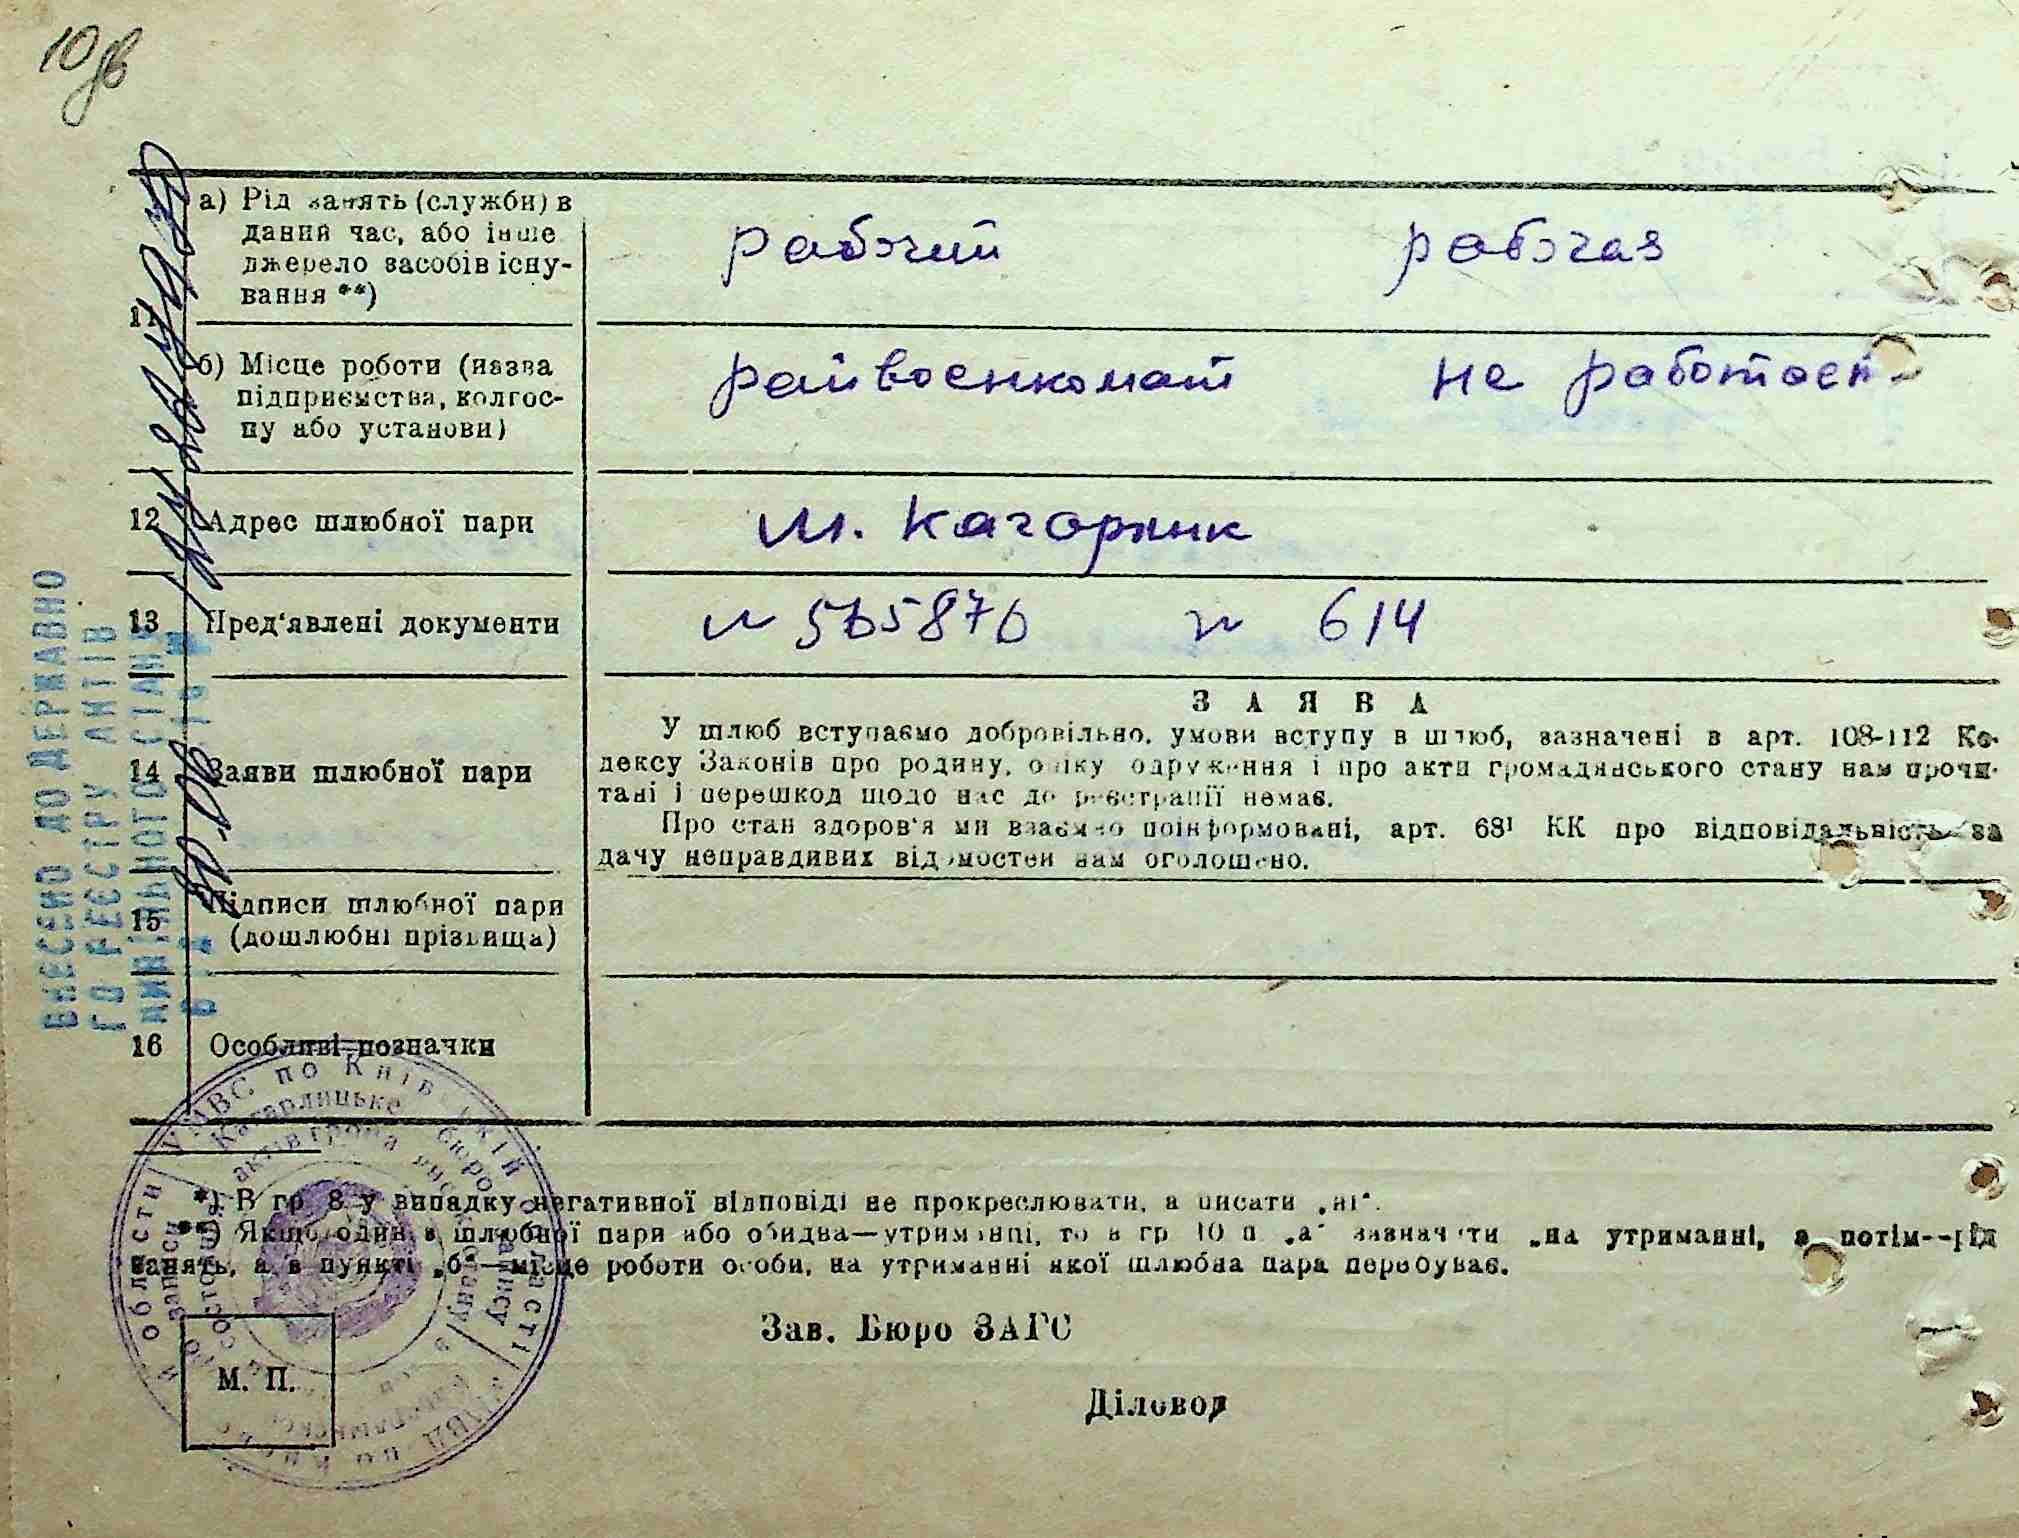 10
а) Рід занять (служби) в
даний час, або інше
джерело засобів існу-
вання **)
11
рабочий рабочая
б) Місце роботи (назва
підприємства, колгос-
пу або установи)
райвоенкомат не работает
12 Адрес шлюбної пари
м. Кагарлик
13 Пред'явлені документи
№ 565876 № 614
14 Заяви шлюбної пари
ЗАЯВА
У шлюб вступаємо добровільно, умови вступу в шлюб, зазначені в арт. 108-112 Ко-
дексу Законів про родину, опіку, одруження і про акти громадянського стану нам прочи-
тані і перешкод щодо нас до реєстрації немає.
Про стан здоров'я ми взаємно поінформовані, арт. 68¹ КК про відповідальність за
дачу неправдивих відомостей нам оголошено.
15 Підписи шлюбної пари
(дошлюбні прізвища)
16 Особливі позначки
ВНЕСЕНО ДО ДЕРЖАВНО
ГО РЕЄСТРУ АКТІВ
ЦИВІЛЬНОГО СТАНУ
УМВС по Київській області
Кагарлицьке бюро запису
актів громадянського
*) В гр. 8 у випадку негативної відповіді не прокреслювати, а писати „ні“.
**) Якщо один з шлюбної пари або обидва—утриманці, то в гр 10 п. „а“ зазначити „на утриманні, а потім--рід
занять, а в пункті „б“—місце роботи особи, на утриманні якої шлюбна пара перебуває.
Зав. Бюро ЗАГС
М. П.
Діловод